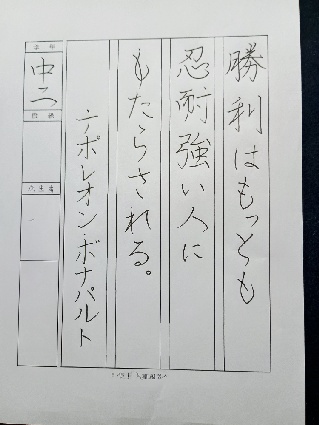 勝利はもっとも
忍耐強い人に
もたらされる。
ナポレオン・ボナパルト
中二